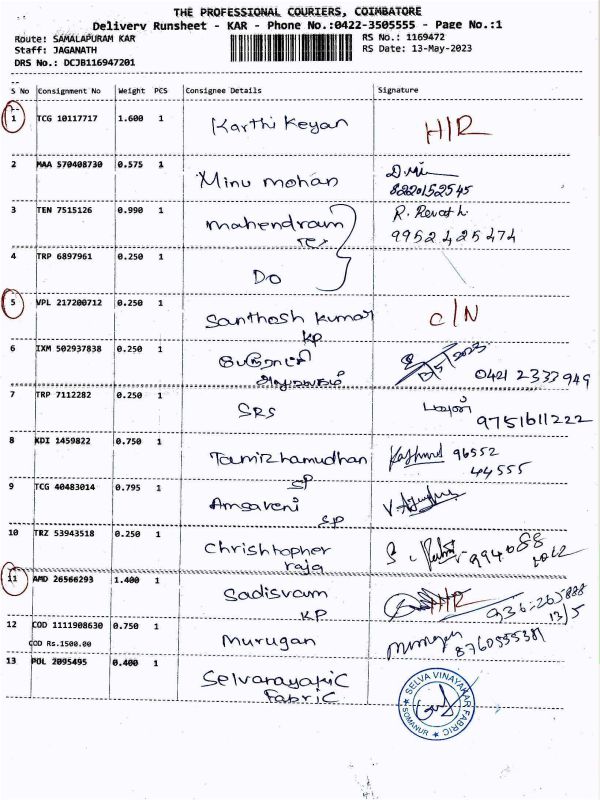 THE PROFESSIONAL COURIERS, COIMBATORE
Delivery Runsheet - KAR - Phone No.:0422-3505555 - Page No.:1
Route: SAMALAPURAM KAR RS No.: 1169472
Staff: JAGANATH RS Date: 13-May-2023
DRS No.: DCJB116947201
S No Consignment No Weight PCS Consignee Details Signature
1 TCG 10117717 1.600 1 Karthi Keyan H/R
2 MAA 570408730 0.575 1 Minu mohan
8220152545
3 TEN 7515126 0.990 1 mahendram R. Revathi
tex 9952425474
4 TRP 6897961 0.250 1 Do
5 VPL 217200712 0.250 1 Santhosh kumar C/N
KP
6 IXM 502937838 0.250 1
0421 2333949
7 TRP 7112282 0.250 1 SRS
9751611222
8 KDI 1459822 0.750 1 Tamizhamudhan 96552
SP 44555
9 TCG 40483014 0.795 1 Amsaveni
SP
10 TRZ 53943518 0.250 1 Chrishtopher
raja
11 AMD 26566293 1.400 1 Sadisvam H/R
KP 13/5
12 COD 1111908630 0.750 1 Murugan murugan
COD Rs.1500.00 8760555381
13 POL 2095495 0.400 1
Fabric
SELVA VINAYAKAR FABRIC
SOMANUR